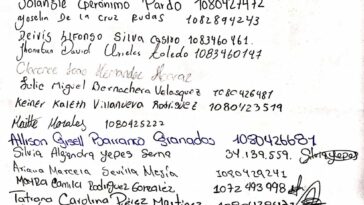 Yolangie Geronimo Pardo 1080427472
Yoselin De la cruz Rudas 1082894243
Deivis Alfonso Silva Castro 1083460461.
Jhonatan David Urieles Toledo 1083460147
Clarence Hernandez
Julie Miguel Bernachera Velasquez 1080426481
Keiner Kaleth Villanueva Rodriguez 1080423519
Maitte Morales 1080425222
Allison Gisell Barranco Granados 1080426681
Silvia Alejandra Yepes Serna 34.139.559. Silvia Yepes
Ariana Marcela Sevilla Mejía 1080429241
Maria Camila Rodriguez González 1072 493 998
Tatiana Carolina Pérez Martinez